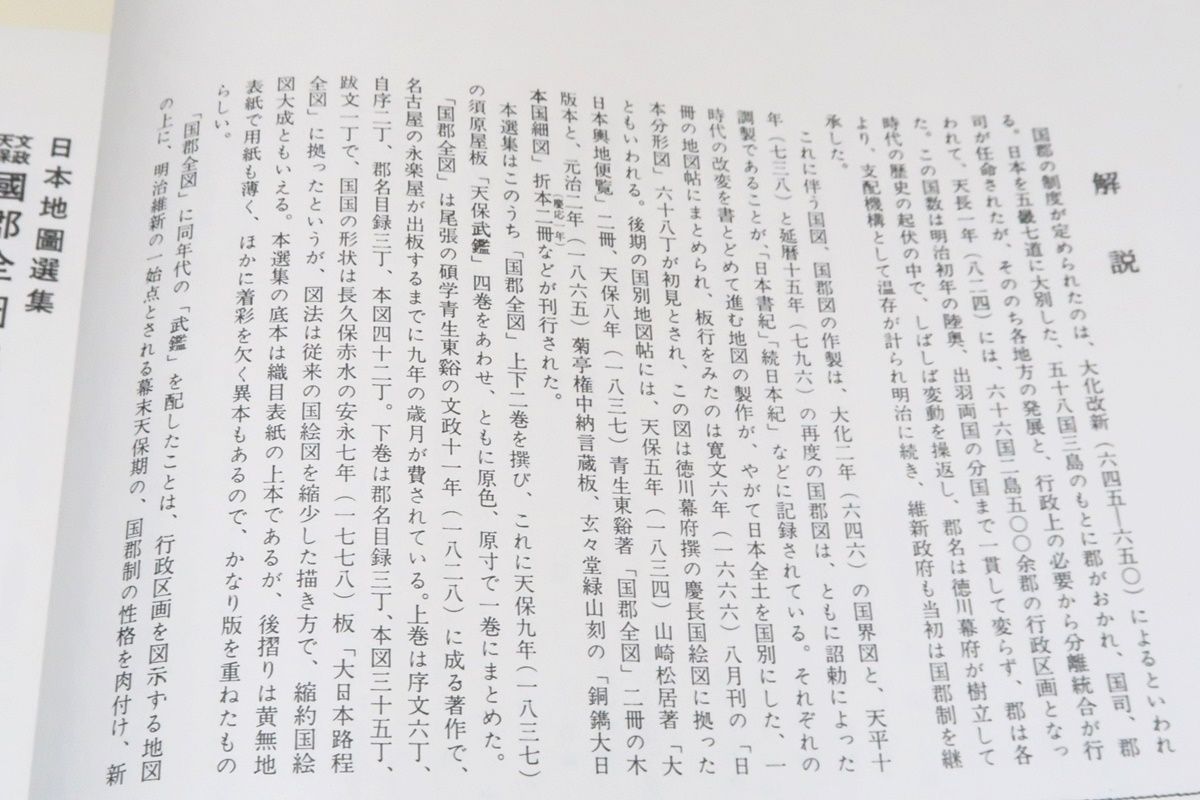 解説
国郡の制度が定められたのは、大化改新（六四五―六五〇）によるといわれ
る。日本を五畿七道に大別した、五十八国三島のもとに郡がおかれ、国司、郡
司が任命されたが、そののち各地方の発展と、行政上の必要から分離統合が行
われて、天長一年（八二四）には、六十六国二島五〇〇余郡の行政区画となっ
た。この国数は明治初年の陸奥、出羽両国の分国まで一貫して変らず、郡は各
時代の歴史の起伏の中で、しばしば変動を操返し、郡名は徳川幕府が樹立して
より、支配機構として温存が計られ明治に続き、維新政府も当初は国郡制を継
承した。
これに伴う国図、国郡図の作製は、大化二年（六四六）の国界図と、天平十
年（七三八）と延暦十五年（七九六）の再度の国郡図は、ともに詔勅によった
調製であることが、「日本書紀」「続日本紀」などに記録されている。それぞれの
時代の改変を書とどめて進む地図の製作が、やがて日本全土を国別にした、一
冊の地図帖にまとめられ、板行をみたのは寛文六年（一六六六）八月刊の「日
本分形図」六十八丁が初見とされ、この図は徳川幕府撰の慶長国絵図に拠った
ともいわれる。後期の国別地図帖には、天保五年（一八三四）山崎松居著「大
日本輿地便覧」二冊、天保八年（一八三七）青生東谿著「国郡全図」二冊の木
版本と、元治二年（慶応一年）（一八六五）菊亭権中納言蔵板、玄々堂緑山刻の「銅鐫大日
本国細図」折本二冊などが刊行された。
本選集はこのうち「国郡全図」上下二巻を撰び、これに天保九年（一八三七）
の須原屋板「天保武鑑」四巻をあわせ、ともに原色、原寸で一巻にまとめた。
「国郡全図」は尾張の碩学青生東谿の文政十一年（一八二八）に成る著作で、
名古屋の永楽屋が出板するまでに九年の歳月が費されている。上巻は序文六丁、
自序二丁、郡名目録三丁、本図四十二丁。下巻は郡名目録三丁、本図三十五丁、
跋文一丁で、国国の形状は長久保赤水の安永七年（一七七八）板「大日本路程
全図」に拠ったというが、図法は従来の国絵図を縮少した描き方で、縮約国絵
図大成ともいえる。本選集の底本は織目表紙の上本であるが、後摺りは黄無地
表紙で用紙も薄く、ほかに着彩を欠く異本もあるので、かなり版を重ねたもの
らしい。
「国郡全図」に同年代の「武鑑」を配したことは、行政区画を図示する地図
の上に、明治維新の一始点とされる幕末天保期の、国郡制の性格を肉付け、新
日本地圖選集
文政天保國郡全図